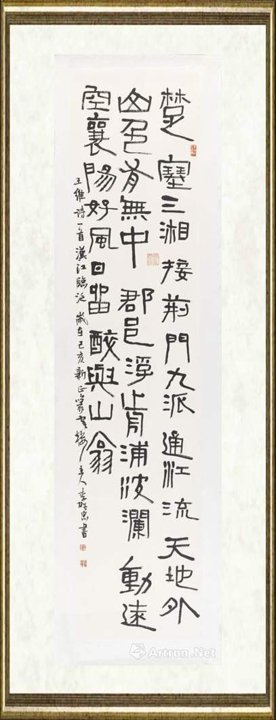 楚塞三湘接荊門九派通江流天地外
山色有無中郡邑浮前浦波瀾動遠
空襄陽好風日留醉與山翁
王維詩一首漢江臨泛歲在己亥新正主人書
Artron.Net